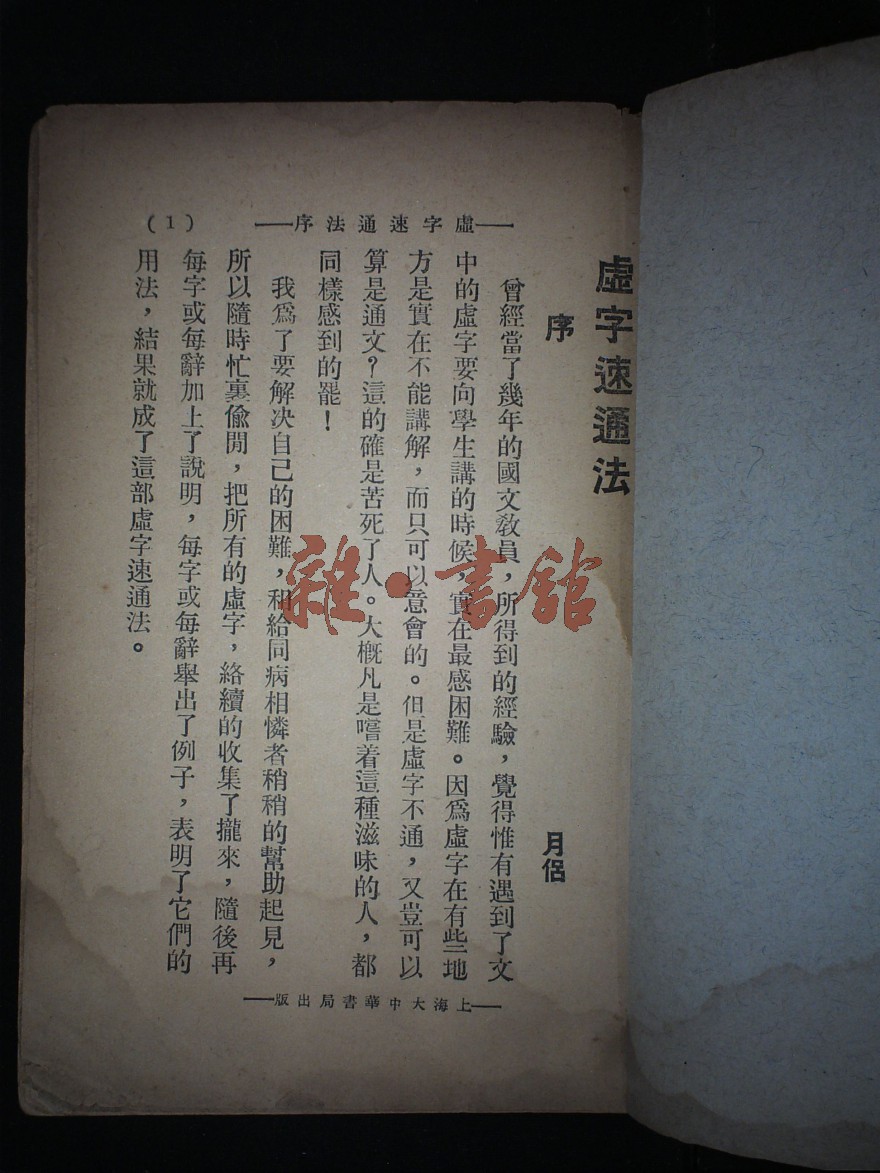 虛字速通法
序
月侶
曾經當了幾年的國文敎員，所得到的經驗，覺得惟有遇到了文
中的虛字要向學生講的時候，實在最感困難。因爲虛字在有些地
方是實在不能講解，而只可以意會的。但是虛字不通，又豈可以
算是通文？這的確是苦死了人。大槪凡是嚐着這種滋味的人，都
同樣感到的罷！
我爲了要解決自己的困難，和給同病相憐者稍稍的幫助起見，
所以隨時忙裏偸閒，把所有的虛字，絡續的收集了攏來，隨後再
每字或每辭加上了說明，每字或每辭舉出了例子，表明了它們的
用法，結果就成了這部虛字速通法。
虛字速通法序
(1)
上海大中華書局出版
雜·書舘